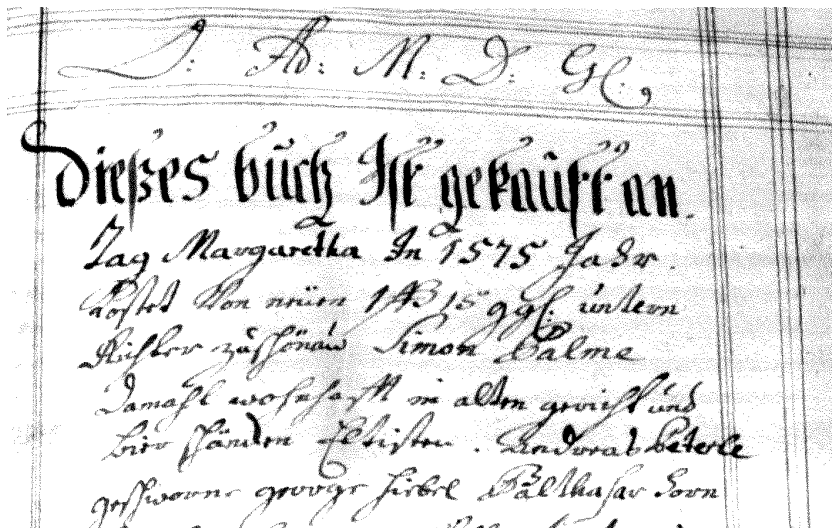 O: A: M: D: Gl:
dießes buch Ist gekaufft an.
Tag Margaretha In 1575 Jahr.
kostet Von neuen 15 ggl: untern
Richter zu schönau Simon Palme
damahl wohnhafft in alten gericht und
bier Eltisten. Andreas Peterle
geschworne george hiebel Balthasar dorn